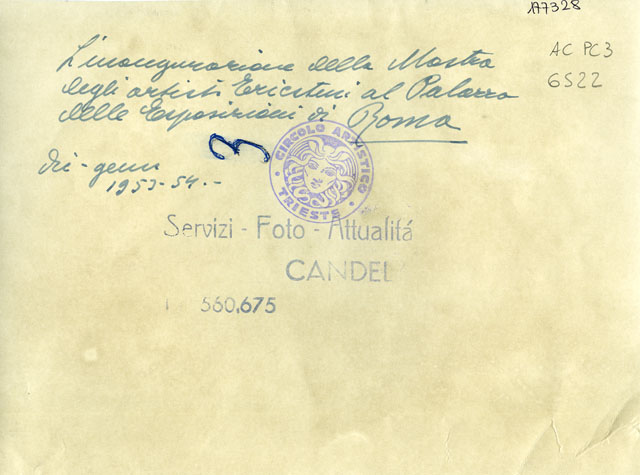 177328
AC PC3
6522
L'inaugurazione della Mostra
degli artisti Triestini al Palazzo
delle Esposizioni di Roma
3
dic - genn
1953-54.-
CIRCOLO ARTISTICO
TRIESTE
Servizi - Foto - Attualitá
CANDEL
560.675